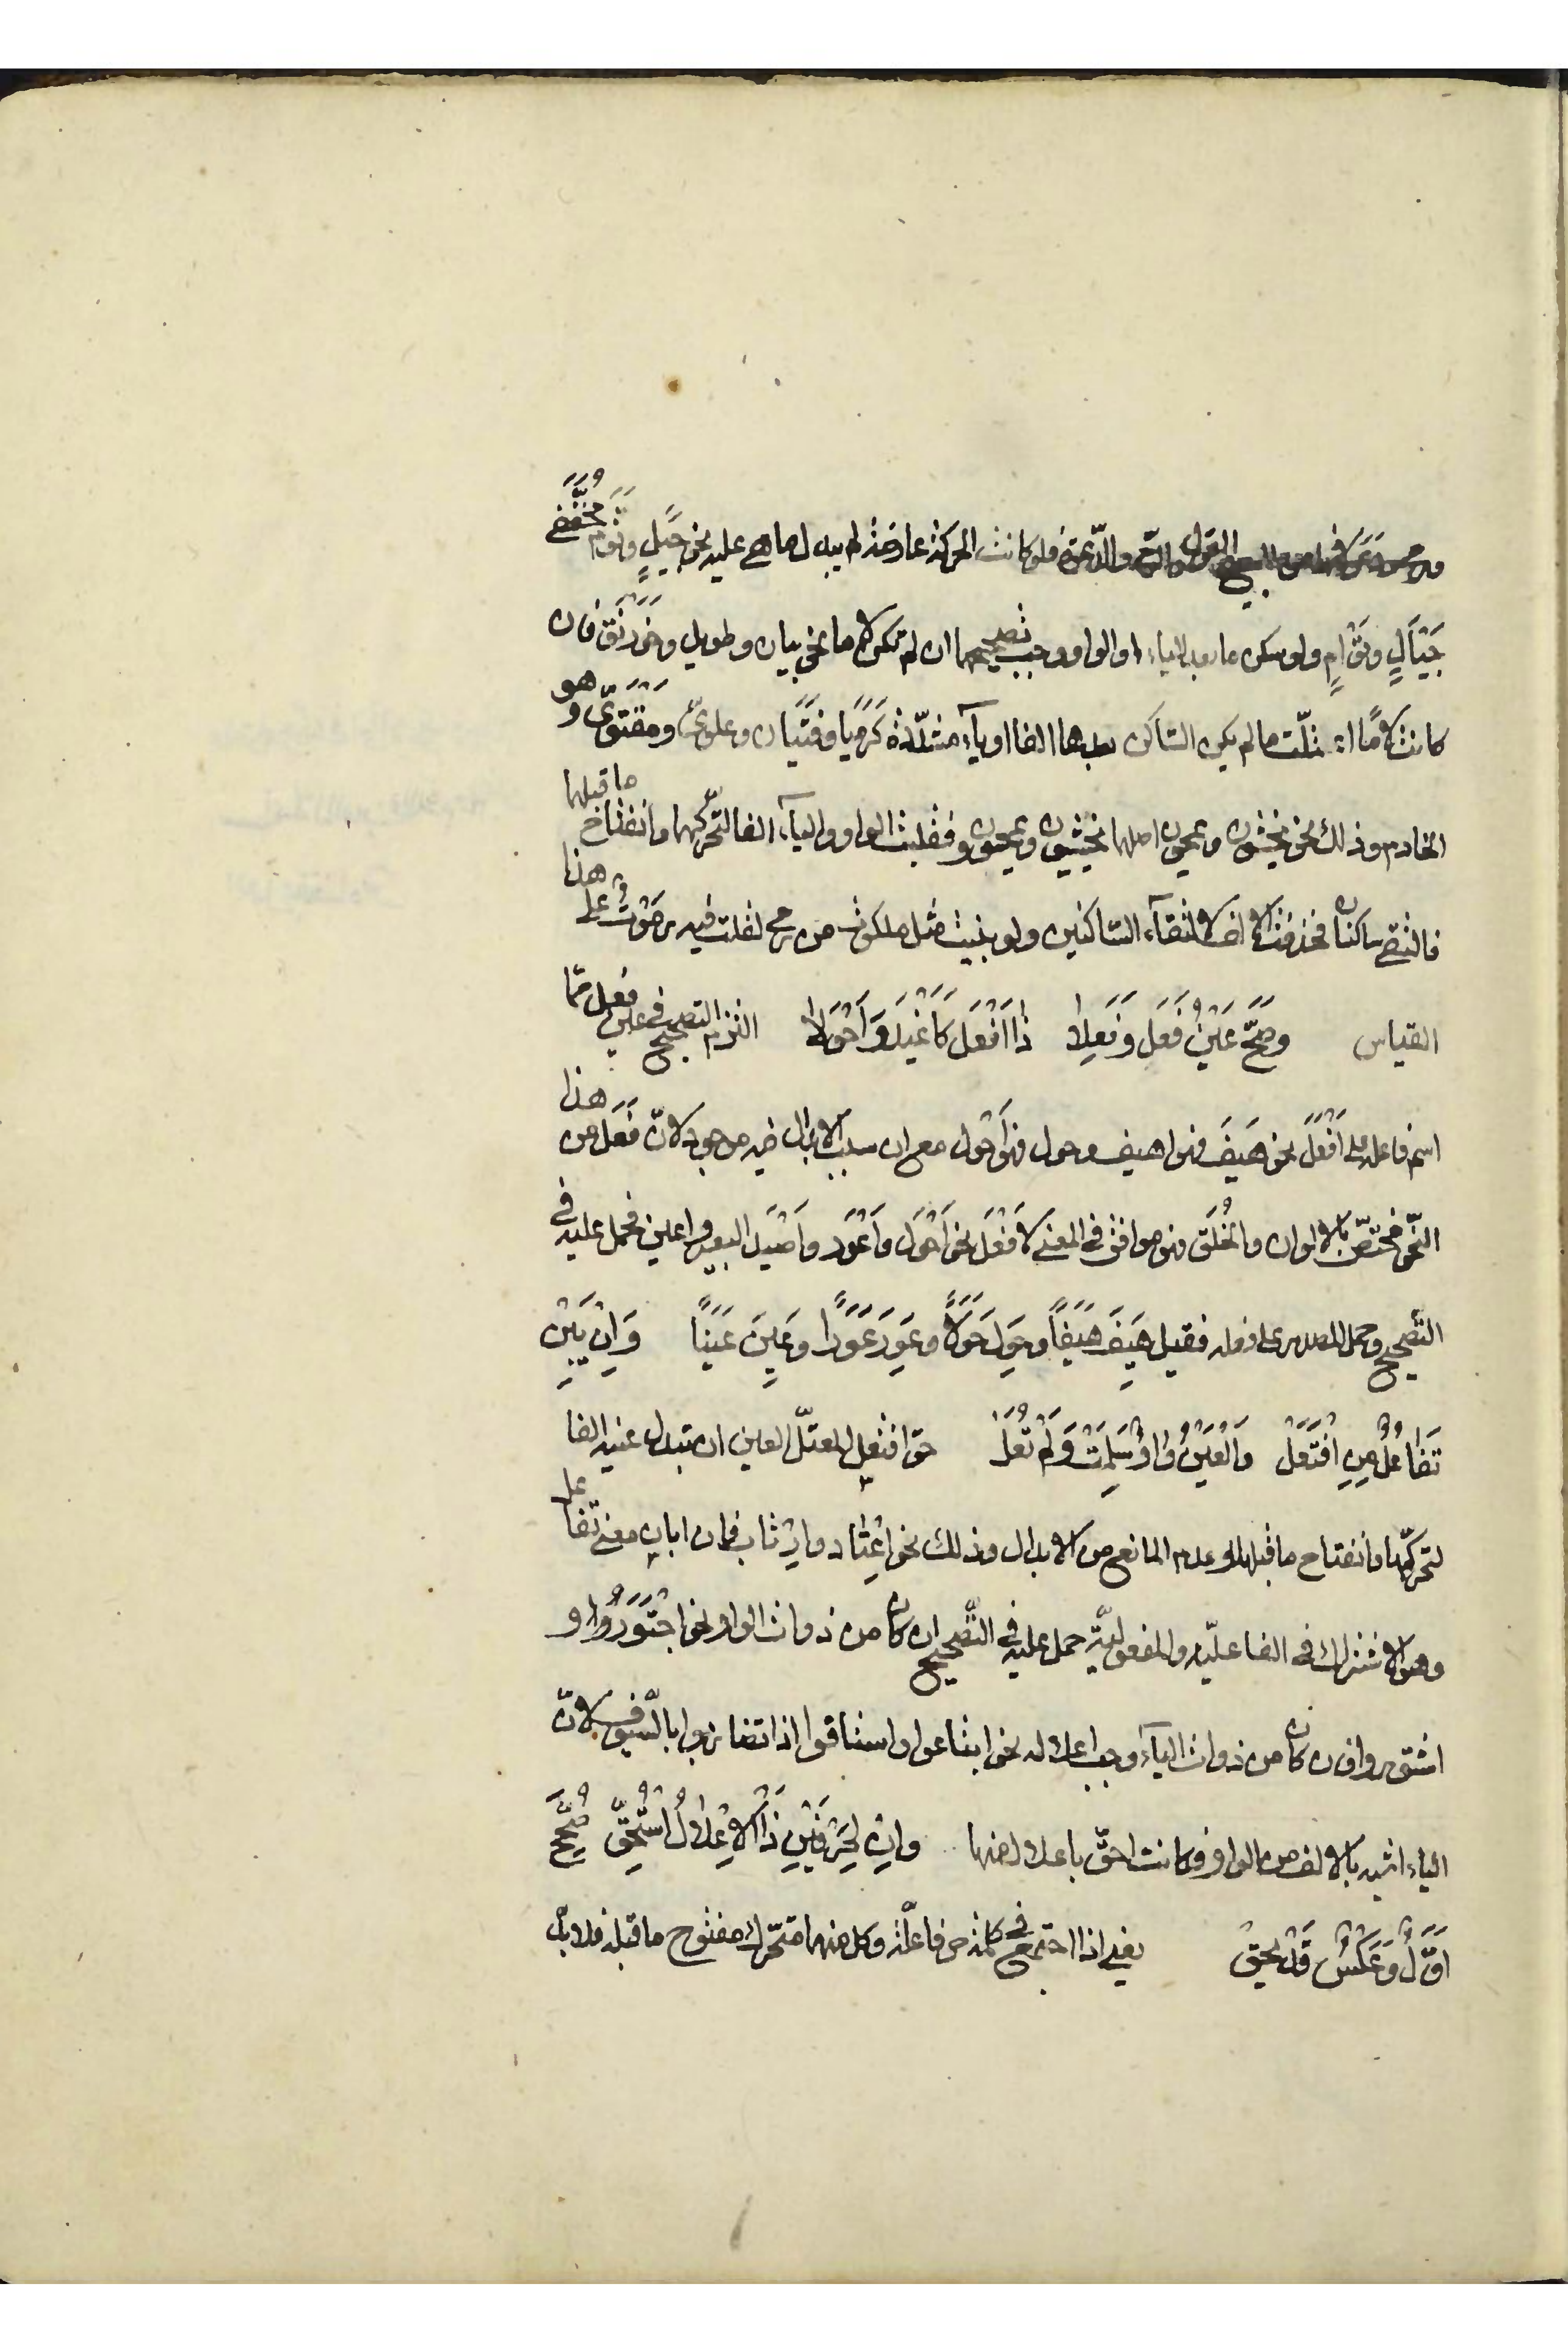 القول والتتبع والدّعوة فلو كانت الحركة عارضة لم يبدل ما هي عليه نحو جَيَلٍ وتَوَمٍ مُخفّفي
جَيْأَلٍ وتَوْأَمٍ ولو سكن ما بعد الياء او الواو وجب تصحيحهما ان لم تكن لاما نحو بيان وطويل وخَوَرْنَق فان
كانت لامًا اعلّت ما لم يكن الساكن بعدها الفا او ياء مشدّدة كَرَمَيَا وفَتَيَان وعلويّ ومَقْتَوِىّ وهو
الخادم وذلك نحو يخشون ويمحون اصلهما يخشيون ويمحوون فقلبت الواو والياء الفا لتحرّكهما وانفتاح ما قبلهما
فالتقى ساكنان فحذفت الالف لالتقاء الساكنين ولو بنيت مثل ملكوت من رمى لقلت فيه رَمَوْتٌ على هذا
القياس وَصَحَّ عَيْنُ فَعَلٍ وَفَعِلا ذا اَفْعَلٍ كَاَغْيَدٍ وَاَحْوَلا التزم التصحيح في عين فعل ممّا
اسم فاعله على اَفْعَل نحو هَيِفَ فهو اهيف وحول فهو اَحْوَل مع ان سبب الابدال فيه موجود لانّ فَعِلَ من هذا
النّحو مختصّ بالالوان والخُلَق فهو موافق في المعنى لاَفْعَلَ نحو اَحْوَل واَعْوَر واَصْيَد البعير واعين فحمل عليه في
التّصحيح وحمل المصدر على فعله فقيل هَيِفَ هَيَفًا وحَوِلَ حَوَلًا وعَوِرَ عَوَرًا وعَيِنَ عَيَنًا وَاِنْ يَبِنْ
تَفَاعُلٌ مِنِ افْتَعَلْ وَالْعَيْنُ وَاوٌ سَلِمَتْ وَلَمْ تُعَلْ حق افتعل المعتلّ العين ان تبدل عينه الفا
لتحرّكها وانفتاح ما قبلها وعدم المانع من الابدال وذلك نحو اِعْتاد وارْتاب فان ابان معنى تفاعل
وهو الاشتراك في الفاعليّة والمفعوليّة حمل عليه في التّصحيح ان كان من ذوات الواو نحو اجْتَوَرُوا و
اشتوروا وان كان من ذوات الياء وجب اعلاله نحو ابتاعوا واستافوا اذا تضاربوا بالسّيوف لانّ
الياء اشبه بالالف من الواو فكانت احقّ باعلال منها وان لِحَرْفَيْنِ ذَا الاِعْلالُ اسْتُحِقّْ صُحِّحَ
اَوَّلٌ وَعَكْسٌ قَدْ يَحِقّْ يعني اذا اجتمع في كلمة حرفا علّة وكل منهما متحّرك مفتوح ما قبله فلا بدّ